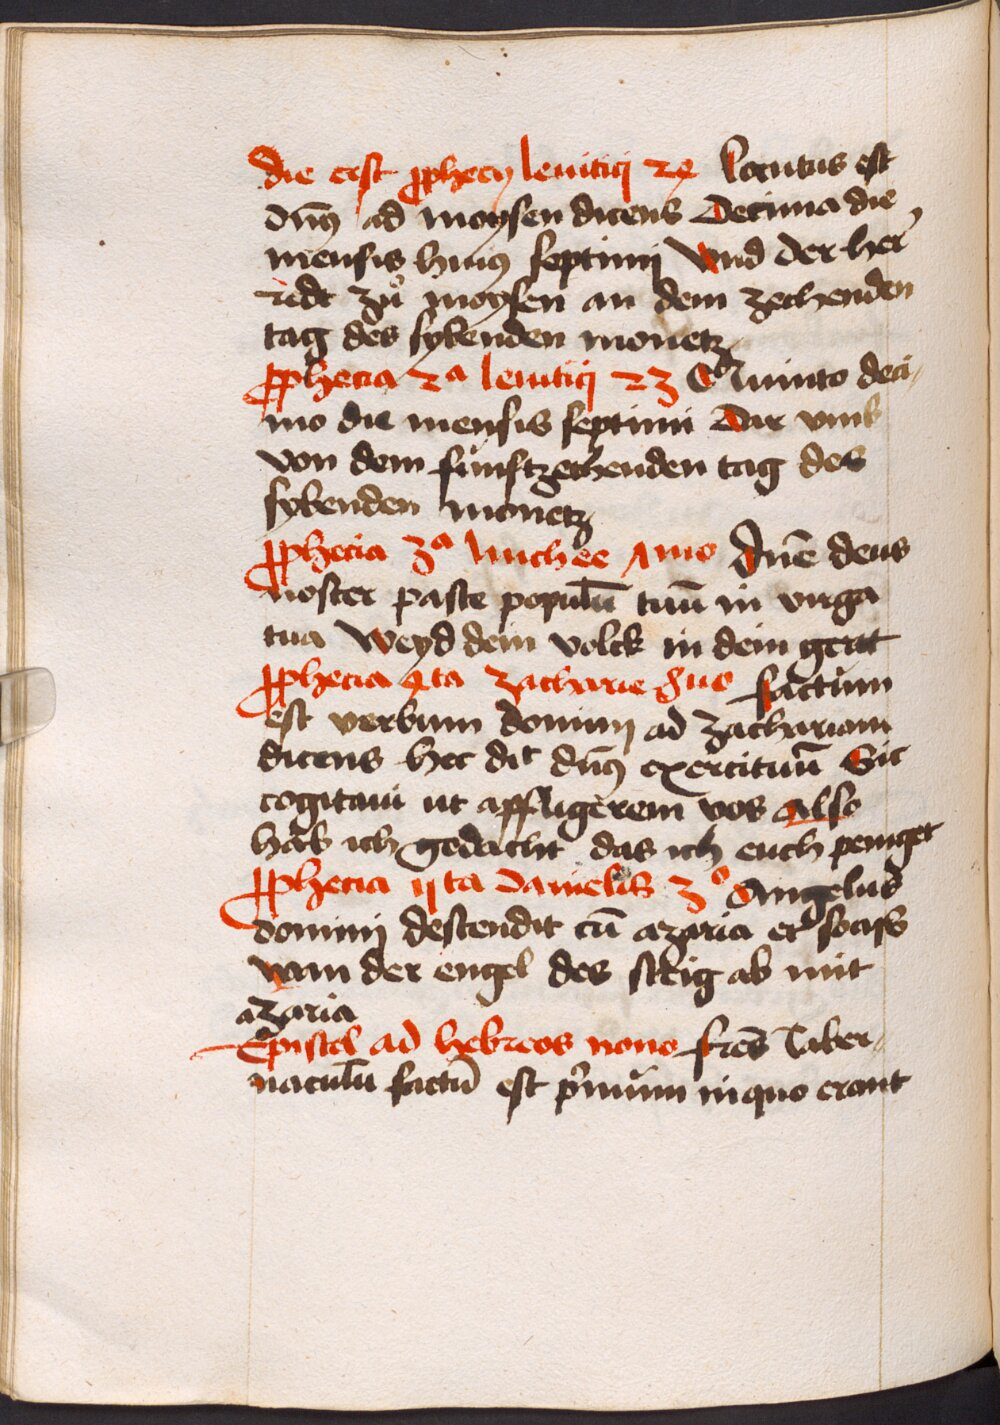 die erst ꝓphecy leuitici 2ꝫ Locutus est
dn̄s ad moysen dicens Decima die
mensis huiꝰ septimi Vnd der her
redt zů moysen an dem zechenden
tag des sybenden monetz
ꝓphecia 2ª leuitici 23 Quinto deci-
mo die mensis septimi Dar vmb
von dem funftzechenden tag des
sybenden monetz
ꝓphecia 3ª Michee Dn̄e deus
noster pasce populū tuū in virga
tua Weyd dein volck in dein gert
ꝓphecia 4ta zacharie 8uo factum
est verbum domini ad zachariam
dicens hec dit dn̄s exercituū Sic
cogitaui ut affligerem vos Also
hab ich gedacht das ich euch peniget
ꝓphecia ꝗta Danielis 3º Angelus
domini descendit cū azaria et socijs
wan der engel des steig ab mit
azaria
Epistel ad hebreos nono fr̄es Taber-
naculū factū est p'mum in quo erant